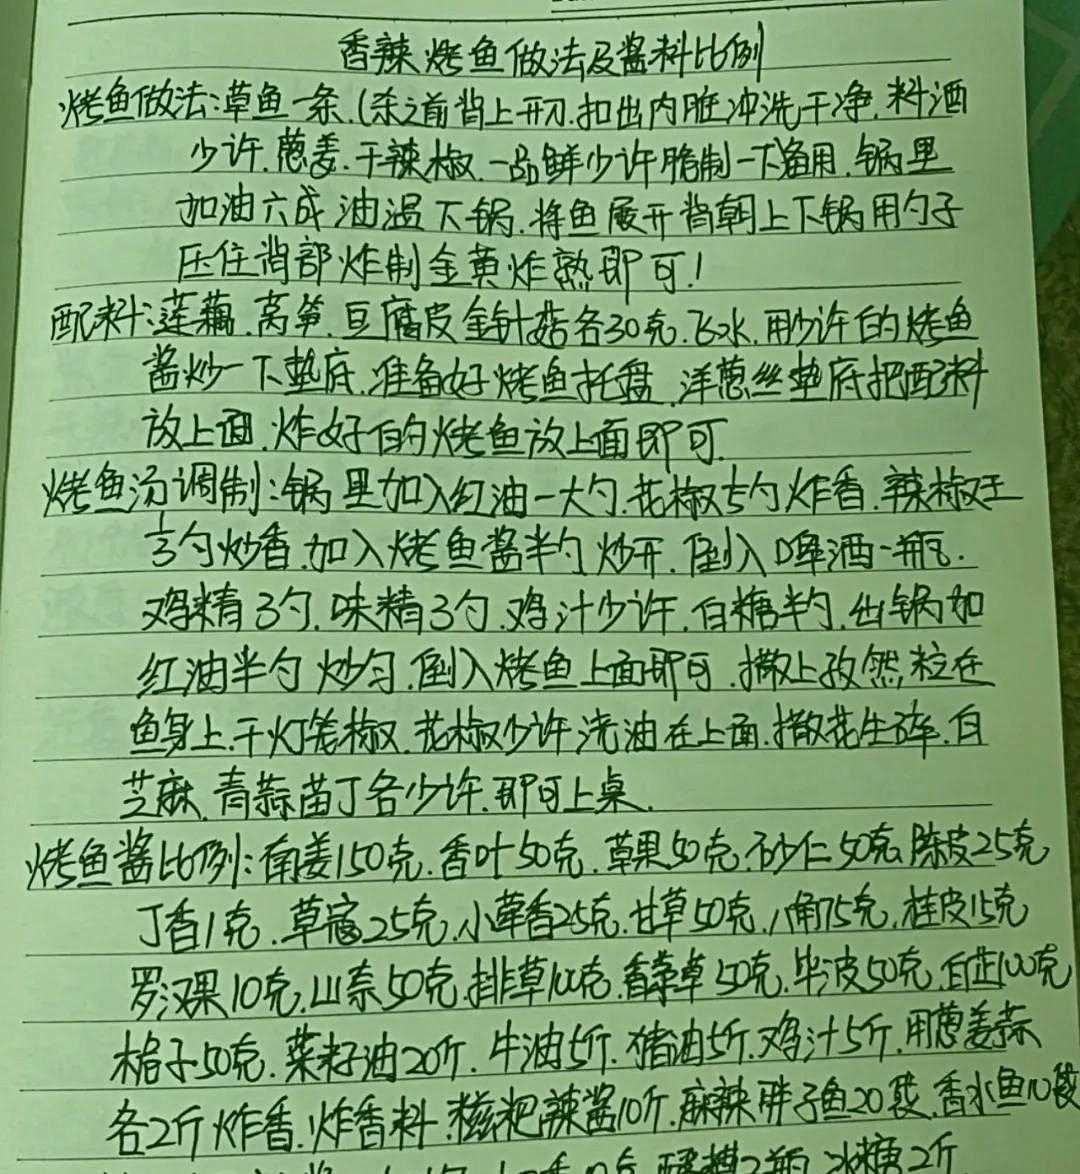 香辣烤鱼做法及酱料比例
烤鱼做法:草鱼一条.(杀之前背上开刀.扣出内脏冲洗干净.料酒
少许.葱姜.干辣椒.一品鲜少许腌制一下备用.锅里
加油六成油温下锅.将鱼展开背朝上下锅用勺子
压住背部炸制金黄炸熟即可!
配料:莲藕.莴笋.豆腐皮金针菇各30克.飞水.用少许的烤鱼
酱炒一下垫底.准备好烤鱼托盘.洋葱丝垫底把配料
放上面.炸好的烤鱼放上面即可.
烤鱼汤调制:锅里加入红油一大勺.花椒 勺炸香.辣椒王
勺炒香.加入烤鱼酱半勺炒开.倒入啤酒一瓶.
鸡精3勺.味精3勺.鸡汁少许.白糖半勺.出锅加
红油半勺炒匀.倒入烤鱼上面即可.撒上孜然粒在
鱼身上.干灯笼椒.花椒少许浇油在上面.撒花生碎.白
芝麻.青蒜苗丁各少许.即可上桌.
烤鱼酱比例:南姜150克.香叶50克.草果50克.砂仁50克.陈皮25克
丁香1克.草寇25克.小草香25克.甘草50克.八角75克.桂皮15克
罗汉果10克.山奈50克.排草100克.香茅草50克.毕波50克.白芷100克
栀子50克.菜籽油20斤.牛油5斤.猪油5斤.鸡汁5斤.用葱姜蒜
各2斤炸香.炸香料.糍粑辣酱10斤.麻辣胖子鱼20袋.香水鱼10袋
醪糟2瓶 冰糖2斤